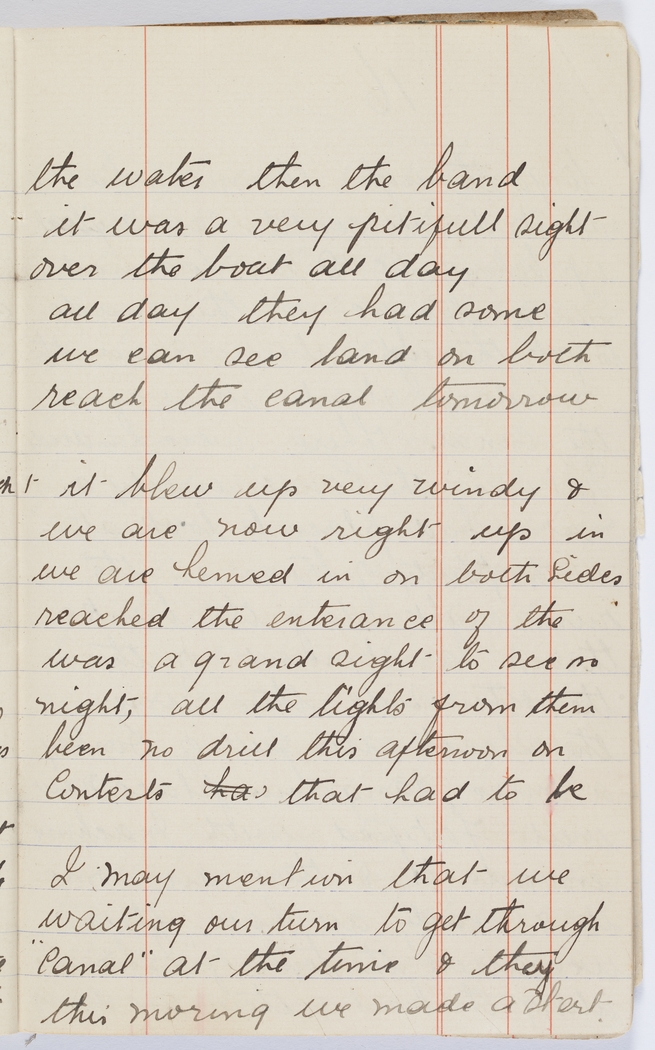 the water then the band
it was a very pitifull sight
over the boat all day
all day they had some
we can see land on both
reach the canal tomorrow
it blew up very windy &
we are now right up in
we are hemed in on both Sides
reached the enterance of the
was a grand sight to see so
night, all the lights from them
been no drill this afternoon on
Contests has that had to be
I may mention that we
waiting our turn to get through
"Canal" at the time & they
this moring we made a Start.